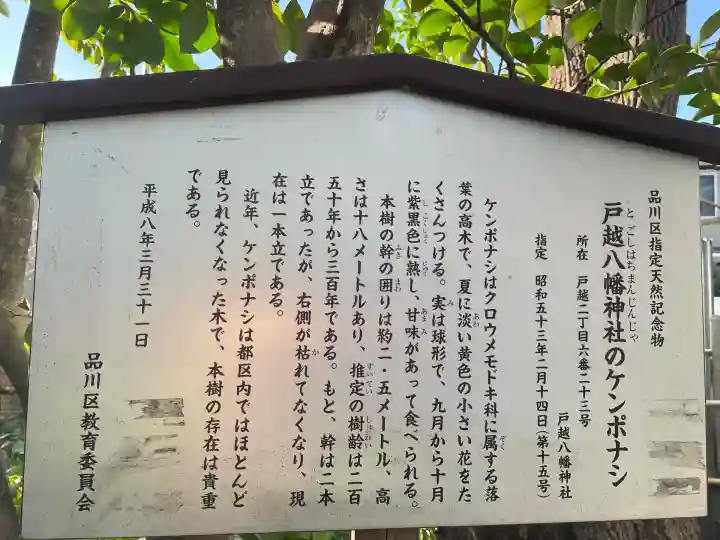 品川区指定天然記念物
戸越八幡神社のケンポナシ
所在　戸越二丁目六番二十三号
戸越八幡神社
指定　昭和五十三年二月十四日(第十五号)
ケンポナシはクロウメモドキ科に属する落
葉の高木で、夏に淡い黄色の小さい花をた
くさんつける。実は球形で、九月から十月
に紫黒色に熟し、甘味があって食べられる。
本樹の幹の囲りは約二・五メートル、高
さは十八メートルあり、推定の樹齢は二百
五十年から三百年である。もと、幹は二本
立であったが、右側が枯れてなくなり、現
在は一本立である。
近年、ケンポナシは都区内ではほとんど
見られなくなった木で、本樹の存在は貴重
である。
平成八年三月三十一日
品川区教育委員会